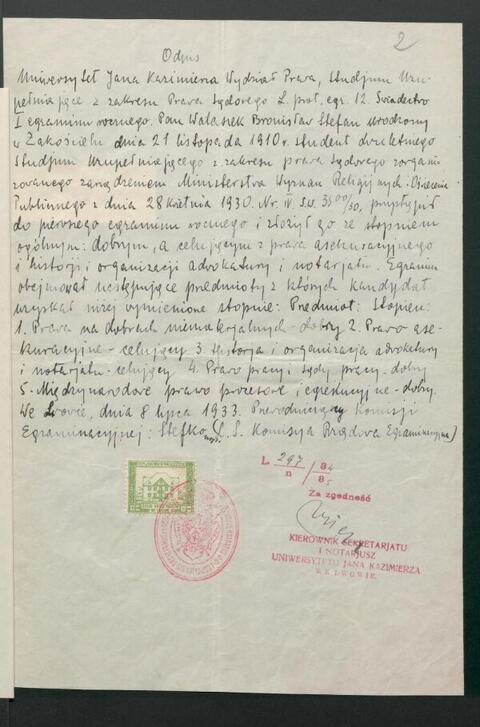 2
Odpis
Uniwersytet Jana Kazimierza Wydział Prawa, Studjum Uzu-
pełniające z zakresu Prawa Sądowego L. prot. egz. 12. Świadectwo
I egzaminu rocznego. Pan Walaszek Bronisław Stefan urodzony
w Zakościelu dnia 21 listopada 1910 r. student dwuletniego
Studjum Uzupełniającego z zakresu prawa sądowego zorgani-
zowanego zarządzeniem Ministerstwa Wyznań Religijnych i Oświecenia
Publicznego z dnia 28 kwietnia 1930. Nr. IV S.W. 3500/30, przystąpił
do pierwszego egzaminu rocznego i złożył go ze stopniem
ogólnym: dobrym, a celującym z prawa asekuracyjnego
i historji i organizacji adwokatury i notarjatu. Egzamin
obejmował następujące przedmioty z których kandydat
uzyskał niżej wymienione stopnie: Przedmiot: Stopień:
1. Prawa na dobrach niematerjalnych - dobry 2. Prawo ase-
kuracyjne - celujący 3. Historja i organizacja adwokatury
i notarjatu - celujący 4. Prawo pracy i sądy pracy - dobry
5. Międzynarodowe prawo procesowe i egzekucyjne - dobry.
We Lwowie, dnia 8 lipca 1933. Przewodniczący Komisji
Egzaminacyjnej: Stefko mp. (L. S. Komisja Rządowa Egzaminacyjna)
L 297/n 34/35
Za zgodność
KIEROWNIK SEKRETARJATU
I NOTARJUSZ
UNIWERSYTETU JANA KAZIMIERZA
WE LWOWIE